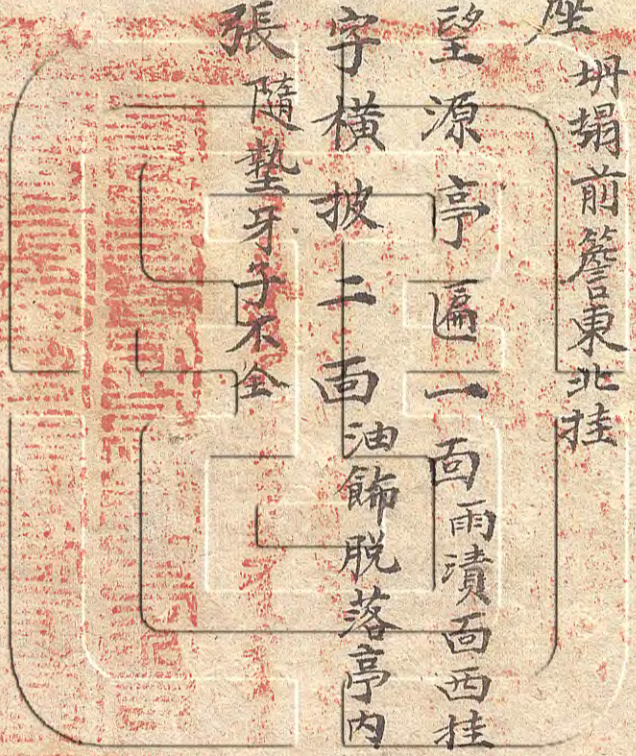 座坍塌前簷東北挂
望源亭匾一面雨漬面西挂
字橫披二面油飾脱落亭内
張隨墊牙子不全